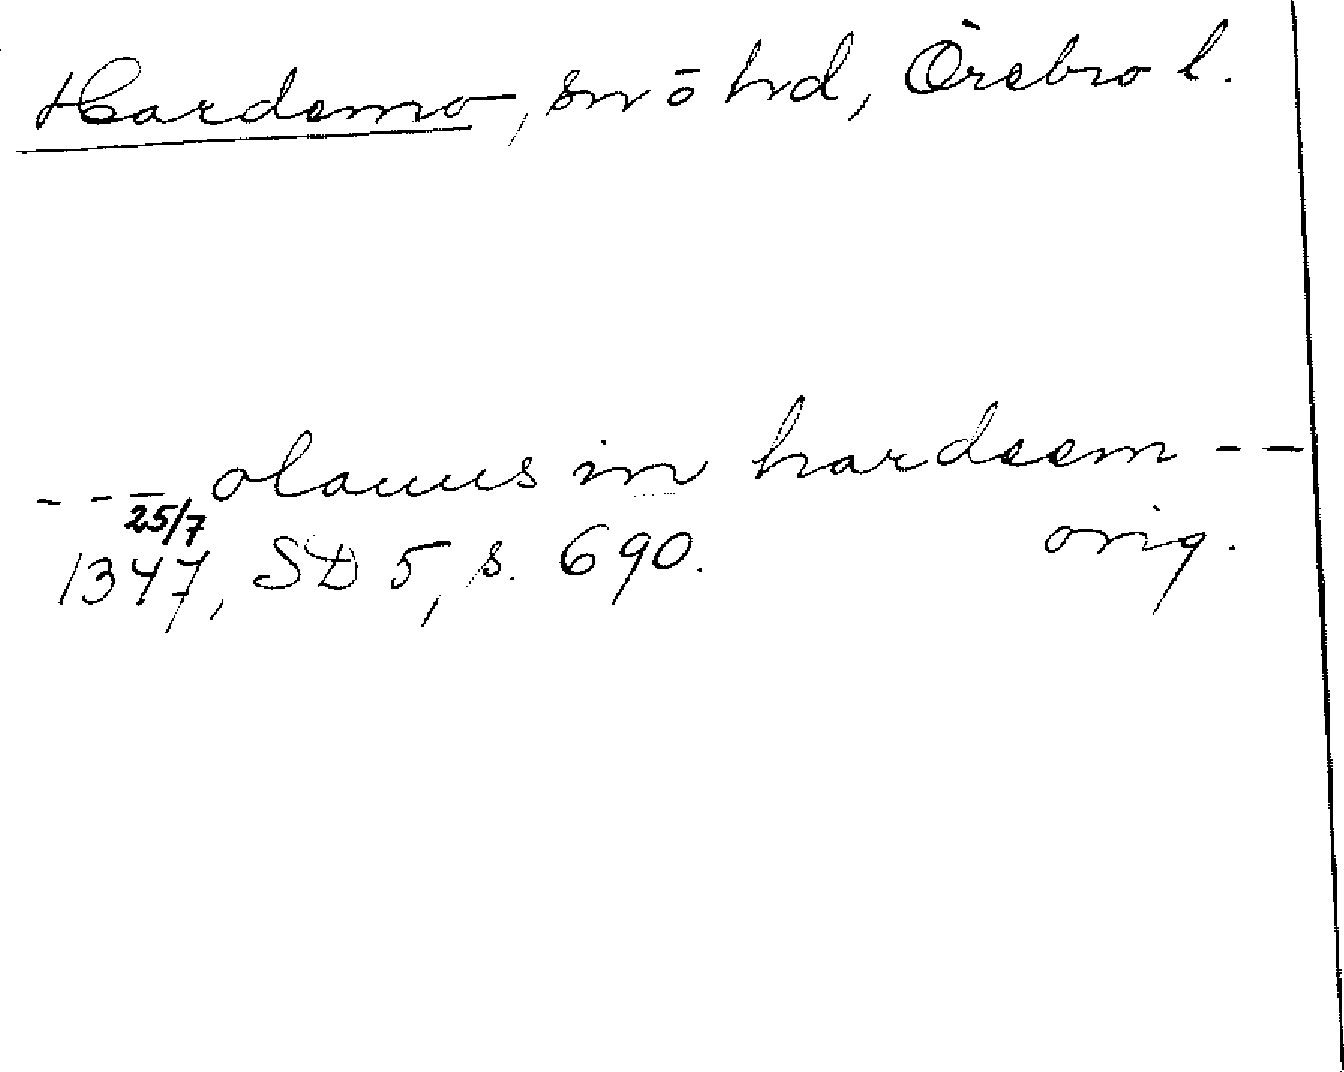 Hardemo, sn o hd, Örebro l.
--- olauus in hardeem --
25/7
1347, SD 5, s. 690. orig.